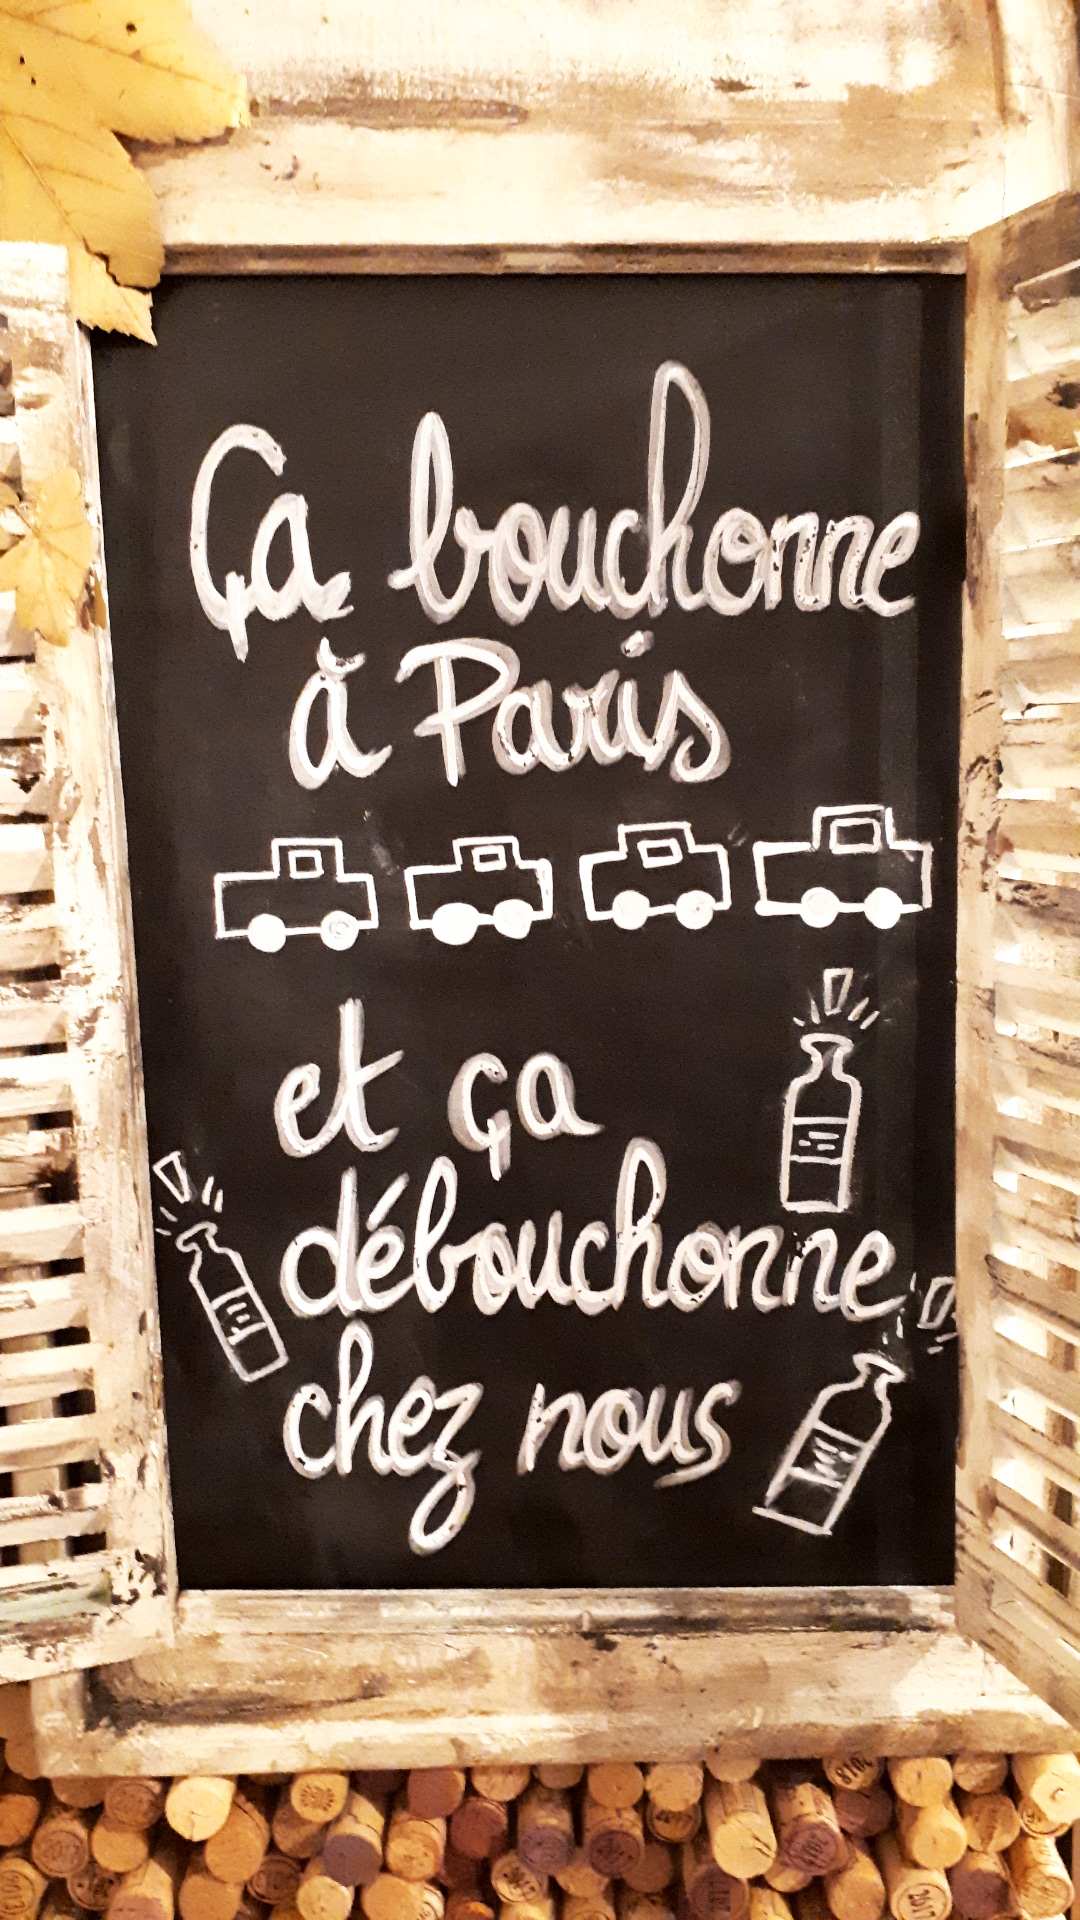 Ça bouchonne
à Paris
et ça
débouchonne
chez nous
2018